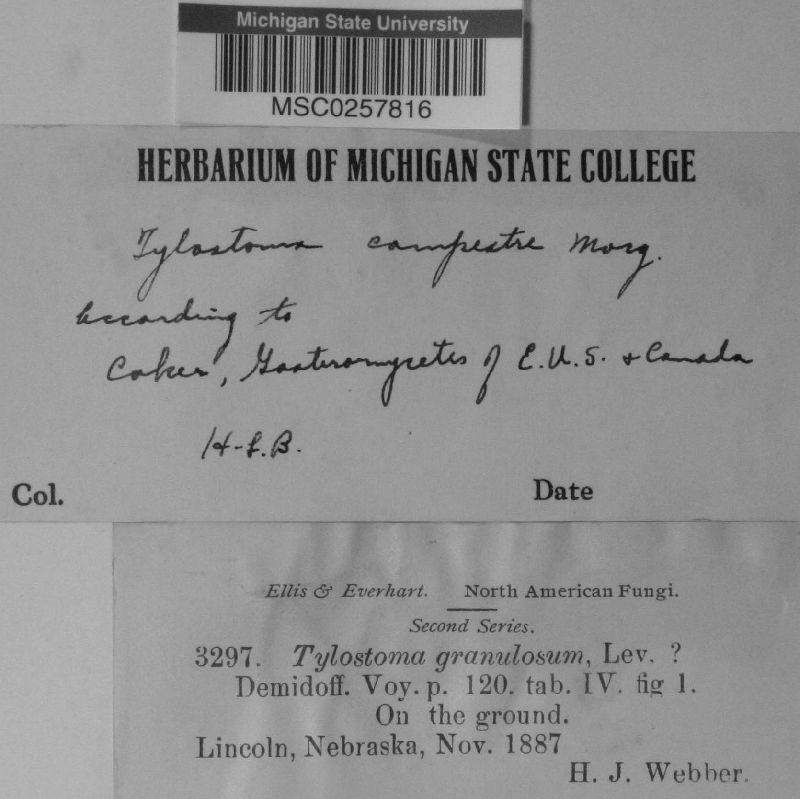 Michigan State University
MSC0257816
HERBARIUM OF MICHIGAN STATE COLLEGE
Tylostoma campestre Morg.
according to
Coker, Gasteromycetes of E.U.S. & Canada
H.L.B.
Col. Date
Ellis & Everhart. North American Fungi.
Second Series.
3297. Tylostoma granulosum, Lev. ?
Demidoff. Voy. p. 120. tab. IV. fig 1.
On the ground.
Lincoln, Nebraska, Nov. 1887
H. J. Webber.